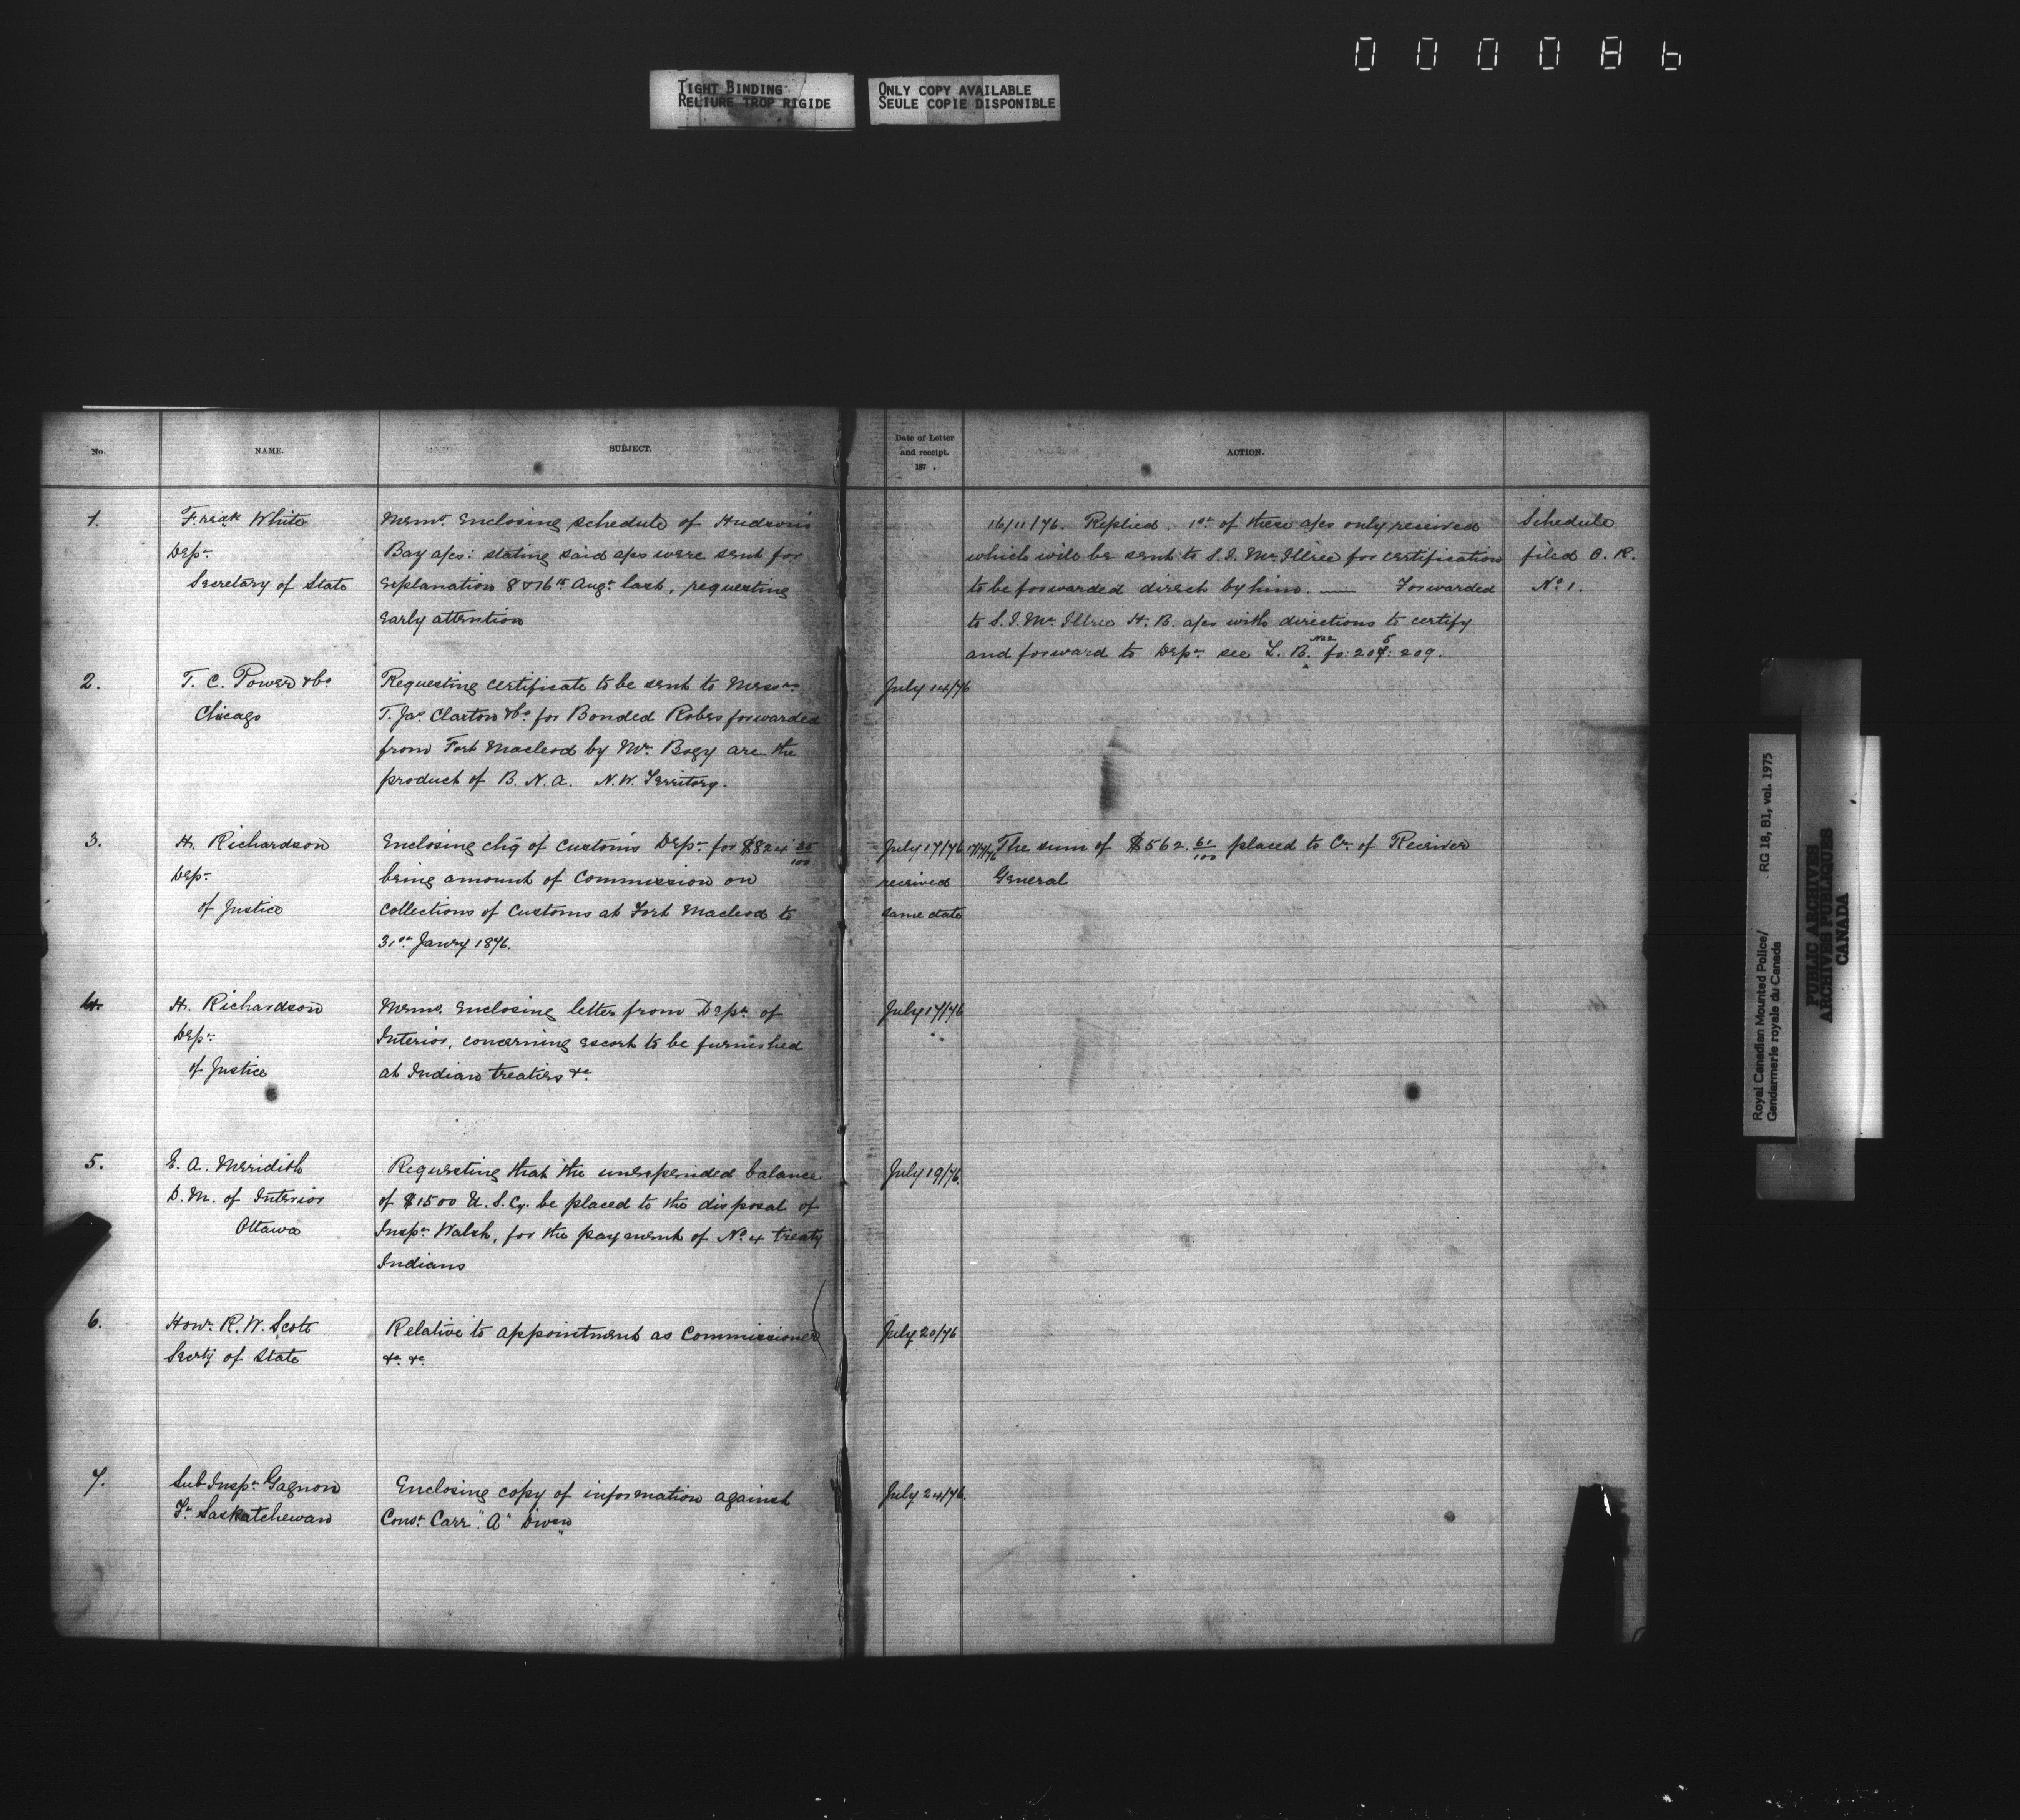 000086
TIGHT BINDING
RELIURE TROP RIGIDE
ONLY COPY AVAILABLE
SEULE COPIE DISPONIBLE
No. NAME. SUBJECT.
Date of Letter
and receipt.
187 .
ACTION.
1.
Fredk White
Dept
Secretary of State
Memo. Enclosing schedule of Hudson's
Bay a/cs: stating said a/cs were sent for
explanation 8 & 16th Augt last, requesting
early attention
16/11/76. Replied. 1st of these a/cs only received
which will be sent to S.I. McIllree for certification
to be forwarded direct by him. — Forwarded
to S.I. McIllree H.B. a/cs with directions to certify
and forward to Dept see L.B. No 2 fo: 205: 209.
Schedule
filed O.R.
No 1.
2.
T. C. Power & Co
Chicago
Requesting certificate to be sent to Messrs
T. Jas Claxton & Co for Bonded Robes forwarded
from Fort Macleod by Mr Bogy are the
product of B. N. A. N.W. Territory.
July 14/76
3.
H. Richardson
Dept
of Justice
Enclosing chq of Customs Dept for $824 35/100
being amount of Commission on
collections of Customs at Fort Macleod to
31st Janry 1876.
July 17/76
received
same date
17/7/76 The sum of $562. 61/100 placed to Cr of Receiver
General
4.
H. Richardson
Dept
of Justice
Memo. Enclosing letter from Dept of
Interior, concerning escort to be furnished
at Indian treaties &c.
July 17/76
5.
E. A. Meridith
D. M. of Interior
Ottawa
Requesting that the unexpended balance
of $1500 U. S. Cy. be placed to the disposal of
Inspr Walsh, for the payment of No 4 treaty
Indians
July 19/76.
6.
Honr R. W. Scott
Secrty of State
Relative to appointment as Commissioner
&c. &c.
July 20/76
7.
Sub-Inspr Gagnon
Ft Saskatchewan
Enclosing copy of information against
Const Carr "A" Divsn
July 24/76.
Royal Canadian Mounted Police/
Gendarmerie royale du Canada
RG 18, B1, vol. 1975
PUBLIC ARCHIVES
ARCHIVES PUBLIQUES
CANADA